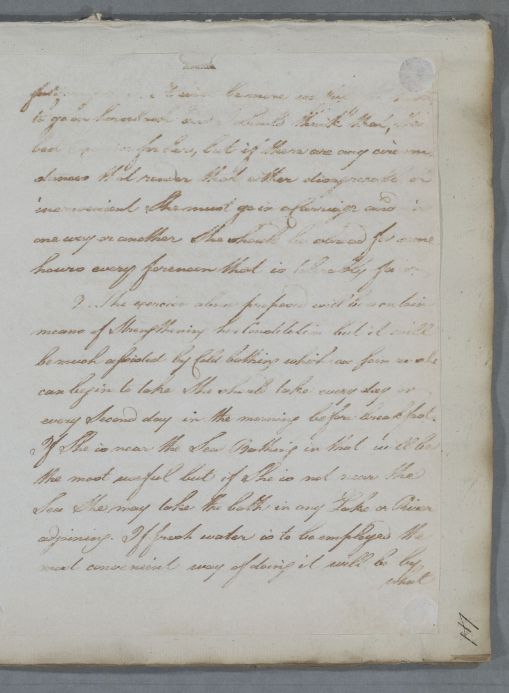 to go on horseback
bad for her, but if there are any circum-
stances that render that either disagreeable or
inconvenient She must go in a Carriage and in
one way or another She should be abroad for some
hours every forenoon that is tolerably fair
The exercise above proposed will be a certain
means of Strengthening her Constitution but it will
be much assisted by Cold bathing which as soon as she
can begin to take She should take every day or
every Second day in the morning before breakfast.
If She is near the Sea Bathing in that will be
the most useful but if She is not near the
Sea She may take the bath in any Lake or River
adjoining. If fresh water is to be employed the
most convenient way of doing it will be by
what